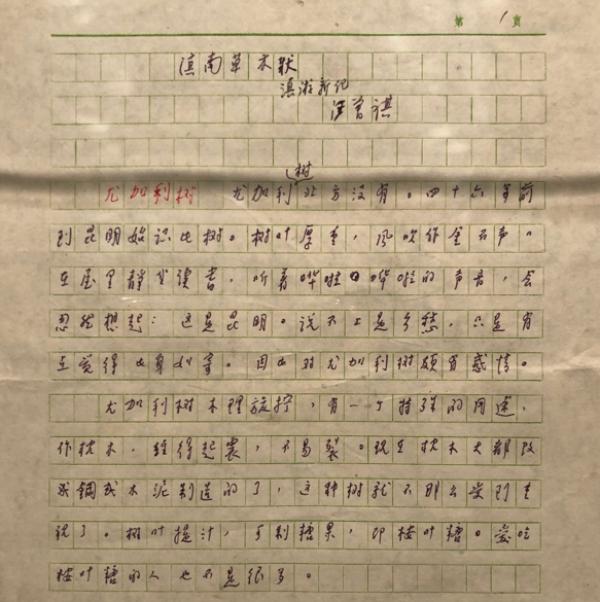 第 1 页
滇南草木状
滇游新记
汪曾祺
尤加利树　尤加利树北方没有。四十六年前
到昆明始识此树。树叶厚重，风吹作金石声。
在屋里静坐读书，听着哗啦哗啦的声音，会
忽然想起：这是昆明。说不上是乡愁，只是有
点觉得此身如寄。因此对尤加利树颇有感情。
尤加利树木理旋拧，有一个特殊的用途，
作枕木，经得起震，不易裂。现在枕木大都改
成钢或水泥制造的了，这种树就不那么受到重
视了。树叶提汁，可制糖果，即桉叶糖。爱吃
桉叶糖的人也不是很多。